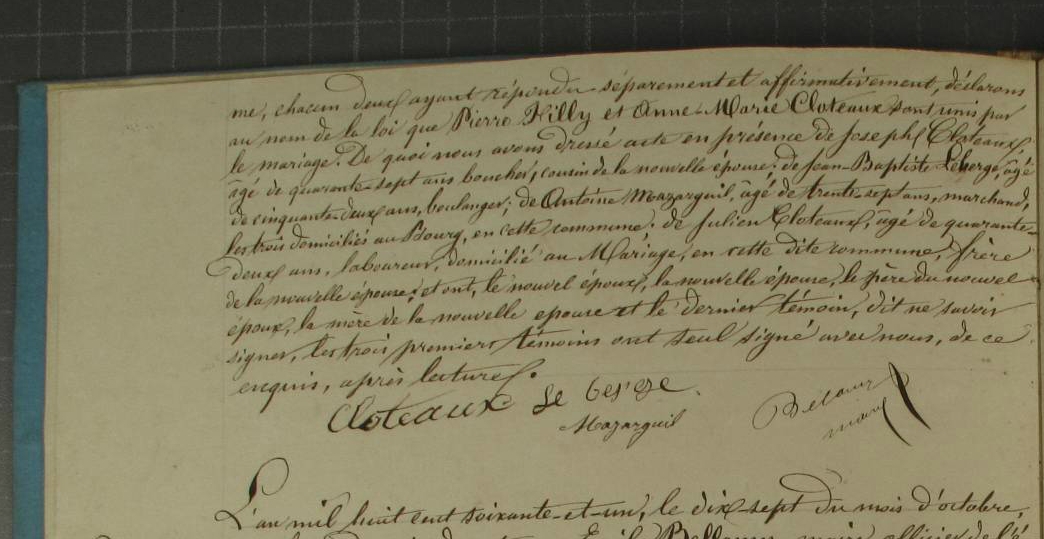 me, chacun deux ayant répondu séparement et affirmativement, déclarons
au nom de la loi que Pierre Hilly et Anne-Marie Cloteaux sont unis par
le mariage. De quoi nous avons dressé acte en présence de Joseph Cloteaux,
agé de quarante-sept ans boucher, cousin de la nouvelle épouse; de Jean-Baptiste Leberge, âgé
de cinquante-deux ans, boulanger; de Antoine Mazarguil, âgé de trente sept ans, marchand,
les trois domiciliés au Bourg, en cette commune; de Julien Cloteaux, âgé de quarante-
deux ans, laboureur, domicilié au Mariage, en cette dite commune, frère
de la nouvelle épouse; et ont, le nouvel époux, la nouvelle épouse, le père du nouvel
époux, la mère de la nouvelle epouse et le dernier témoin, dit ne savoir
signer, les trois premiers témoins ont seul signé avec nous, de ce
enquis, après lecture.
Cloteaux Le
Mazarguil
maire
L'an mil huit cent soixante-et-un, le dix-sept du mois d'octobre,
maire officier de l'é